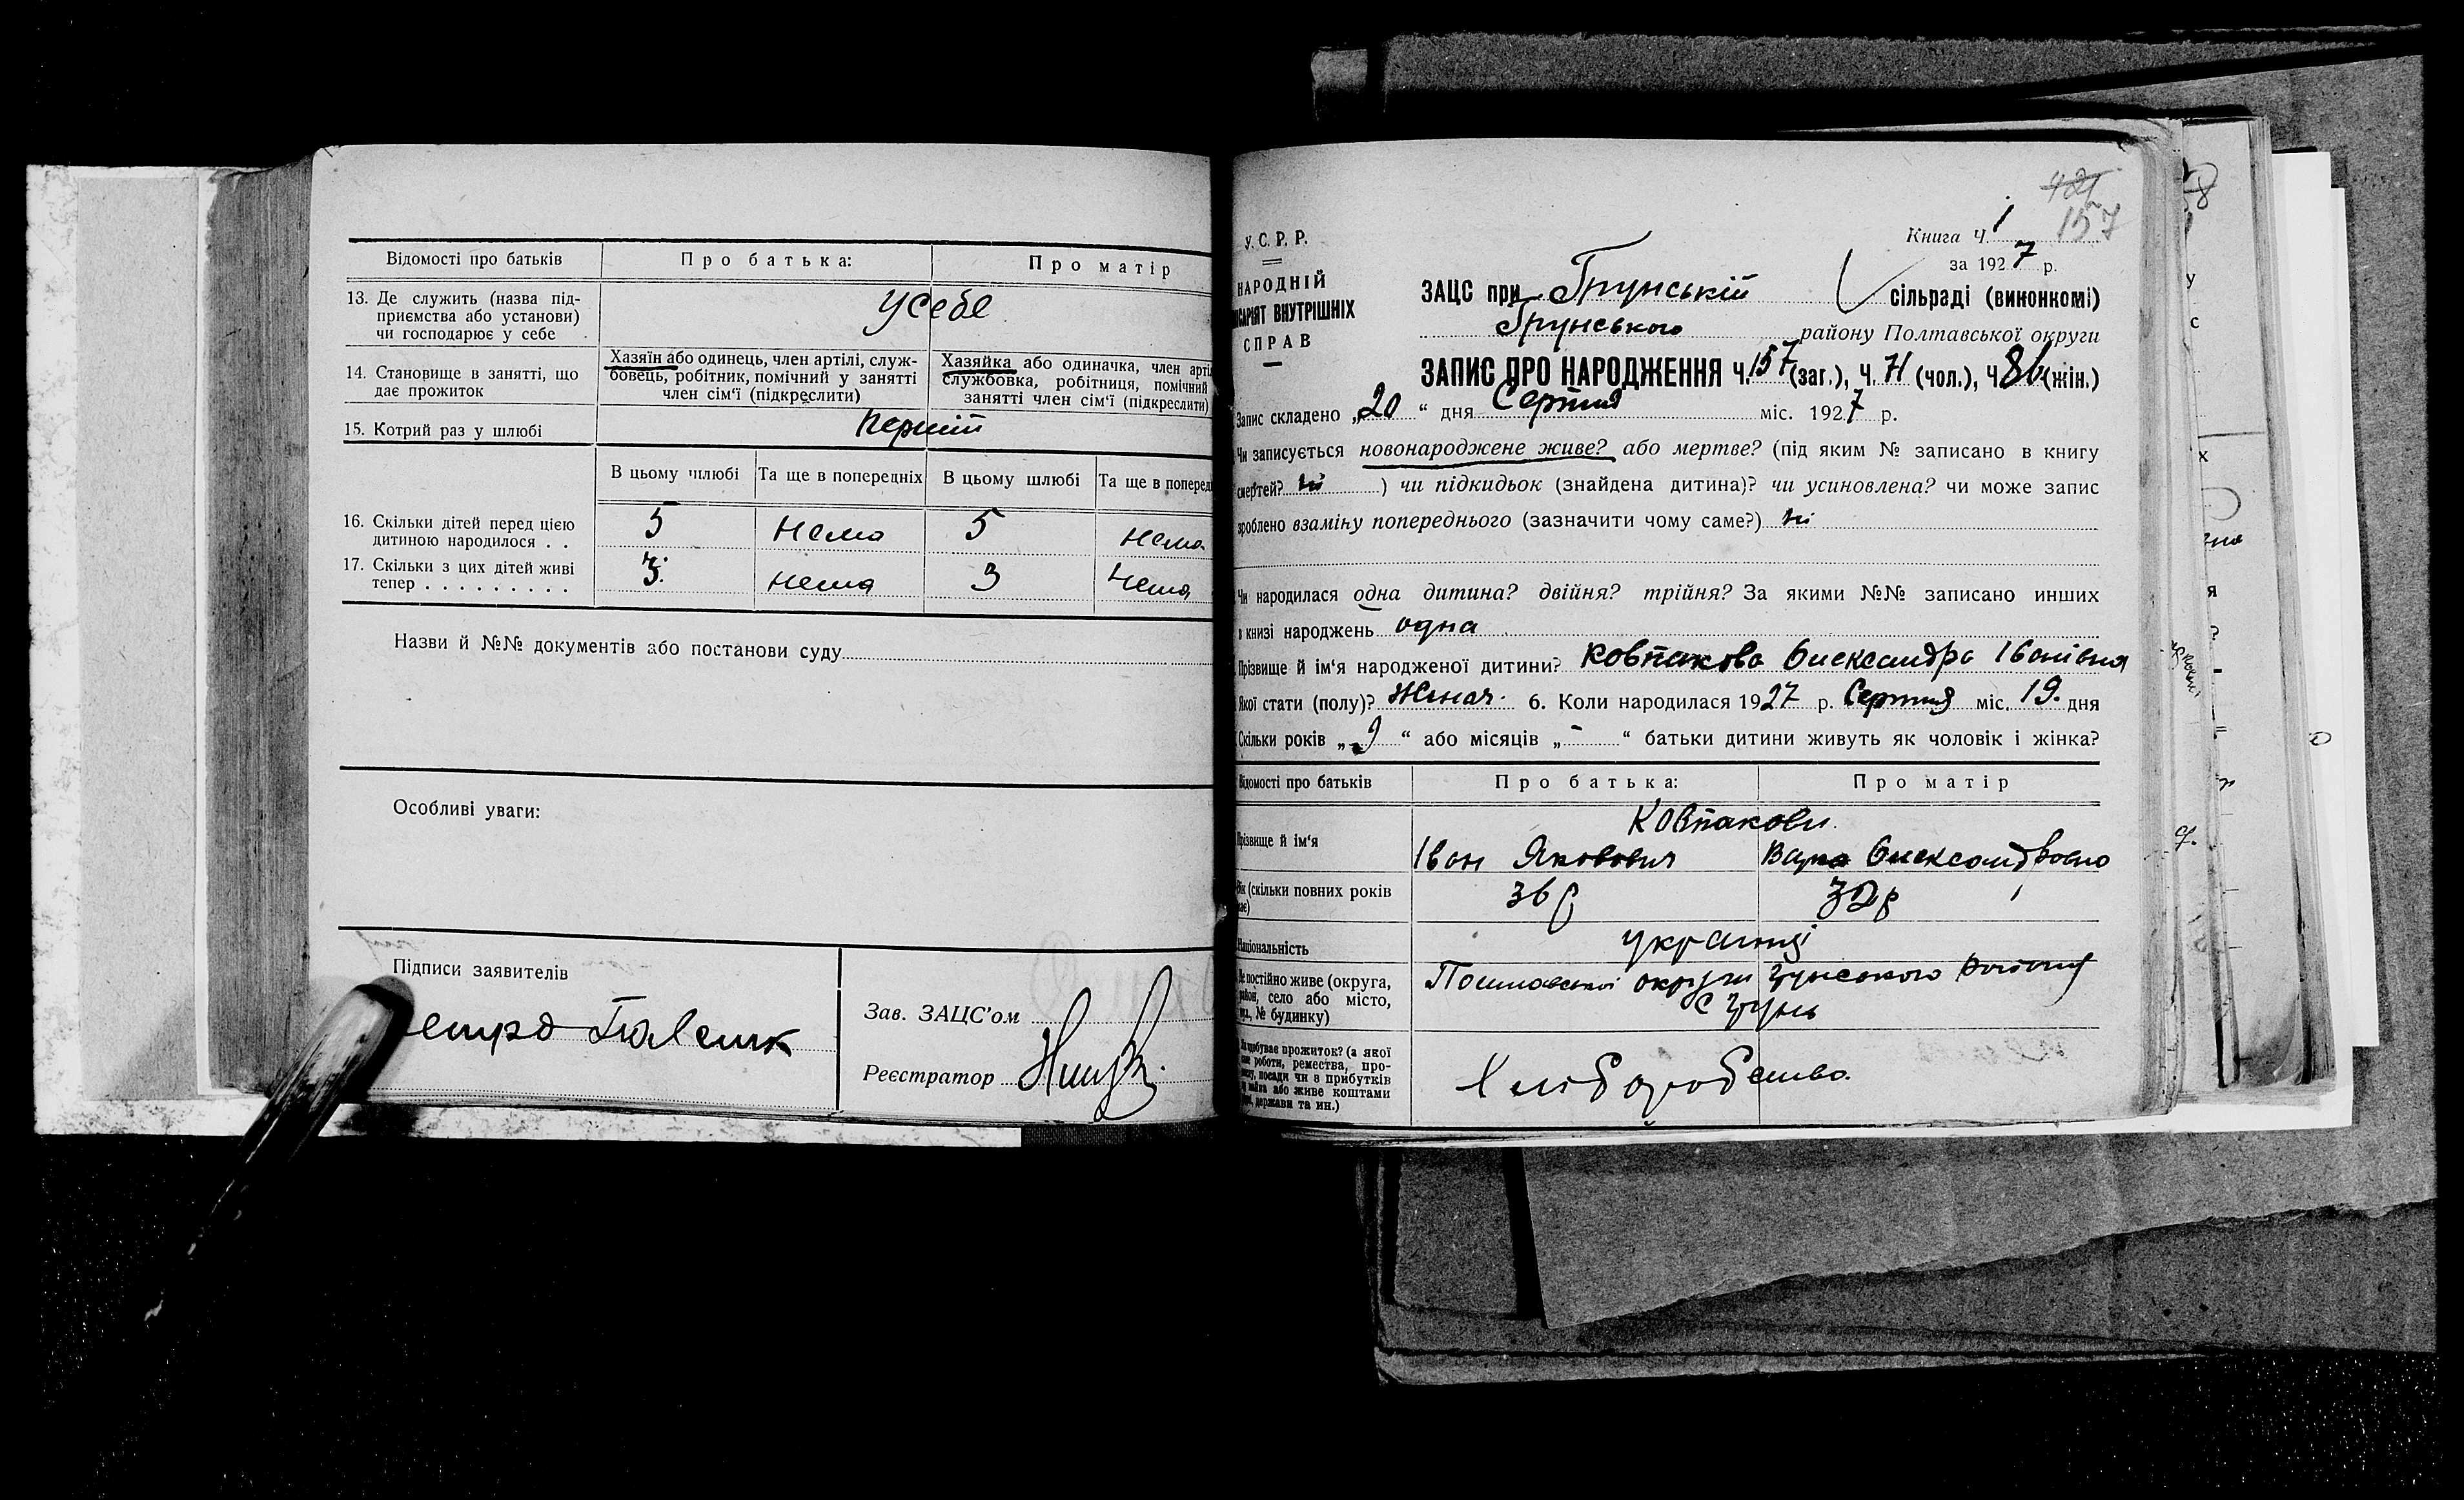 Відомості про батьків Про батька: Про матір
13. Де служить (назва під-
приємства або установи)
чи господарює у себе
усебе
14. Становище в занятті, що
дає прожиток
Хазяїн або одинець, член артілі, служ-
бовець, робітник, помічний у занятті
член сім'ї (підкреслити)
Хазяйка або одиначка, член арті
службовка, робітниця, помічний
занятті член сім'ї (підкреслити)
15. Котрий раз у шлюбі перший
В цьому шлюбі Та ще в попередніх В цьому шлюбі Та ще в поперед
16. Скільки дітей перед цією
дитиною народилося . .
5 нема 5 нема
17. Скільки з цих дітей живі
тепер . . . . . . . . .
3 нема 3 нема
Назви й №№ документів або постанови суду
Особливі уваги:
Підписи заявителів
Зав. ЗАЦС'ом
Реєстратор
У. С. Р. Р.
НАРОДНІЙ
ІСАРІЯТ ВНУТРІШНІХ
СПРАВ
157
Книга Ч. 1
за 1927 р.
ЗАЦС при Грунській сільраді (виконкомі)
Грунського району Полтавської округи
ЗАПИС ПРО НАРОДЖЕННЯ Ч. 157 (заг.), Ч. 71 (чол.), Ч. 86 (жін.)
Запис складено „20“ дня Серпня міс. 1927 р.
Чи записується новонароджене живе? або мертве? (під яким № записано в книгу
смертей? ні ) чи підкидьок (знайдена дитина)? чи усиновлена? чи може запис
зроблено взаміну попереднього (зазначити чому саме?) ні
Чи народилася одна дитина? двійня? трійня? За якими №№ записано инших
в книзі народжень одна
Прізвище й ім'я народженої дитини? Ковпакова Олександра Іванівна
Якої стати (полу)? Жіноч. 6. Коли народилася 1927 р. Серпня міс. 19. дня
Скільки років „9“ або місяців „-“ батьки дитини живуть як чоловік і жінка?
Відомості про батьків Про батька: Про матір
Прізвище й ім'я
Ковпакови
Іван Якович Олександровна
Вік (скільки повних років
має)
36 р 32 р
Національність українці
Де постійно живе (округа,
район, село або місто,
вул., № будинку)
Полтавської округи Грунського району
С Грунь
Як здобуває прожиток? (з якої
саме роботи, ремества, про-
мислу, посади чи з прибутків
майна або живе коштами
держави та ин.)
Хліборобство.